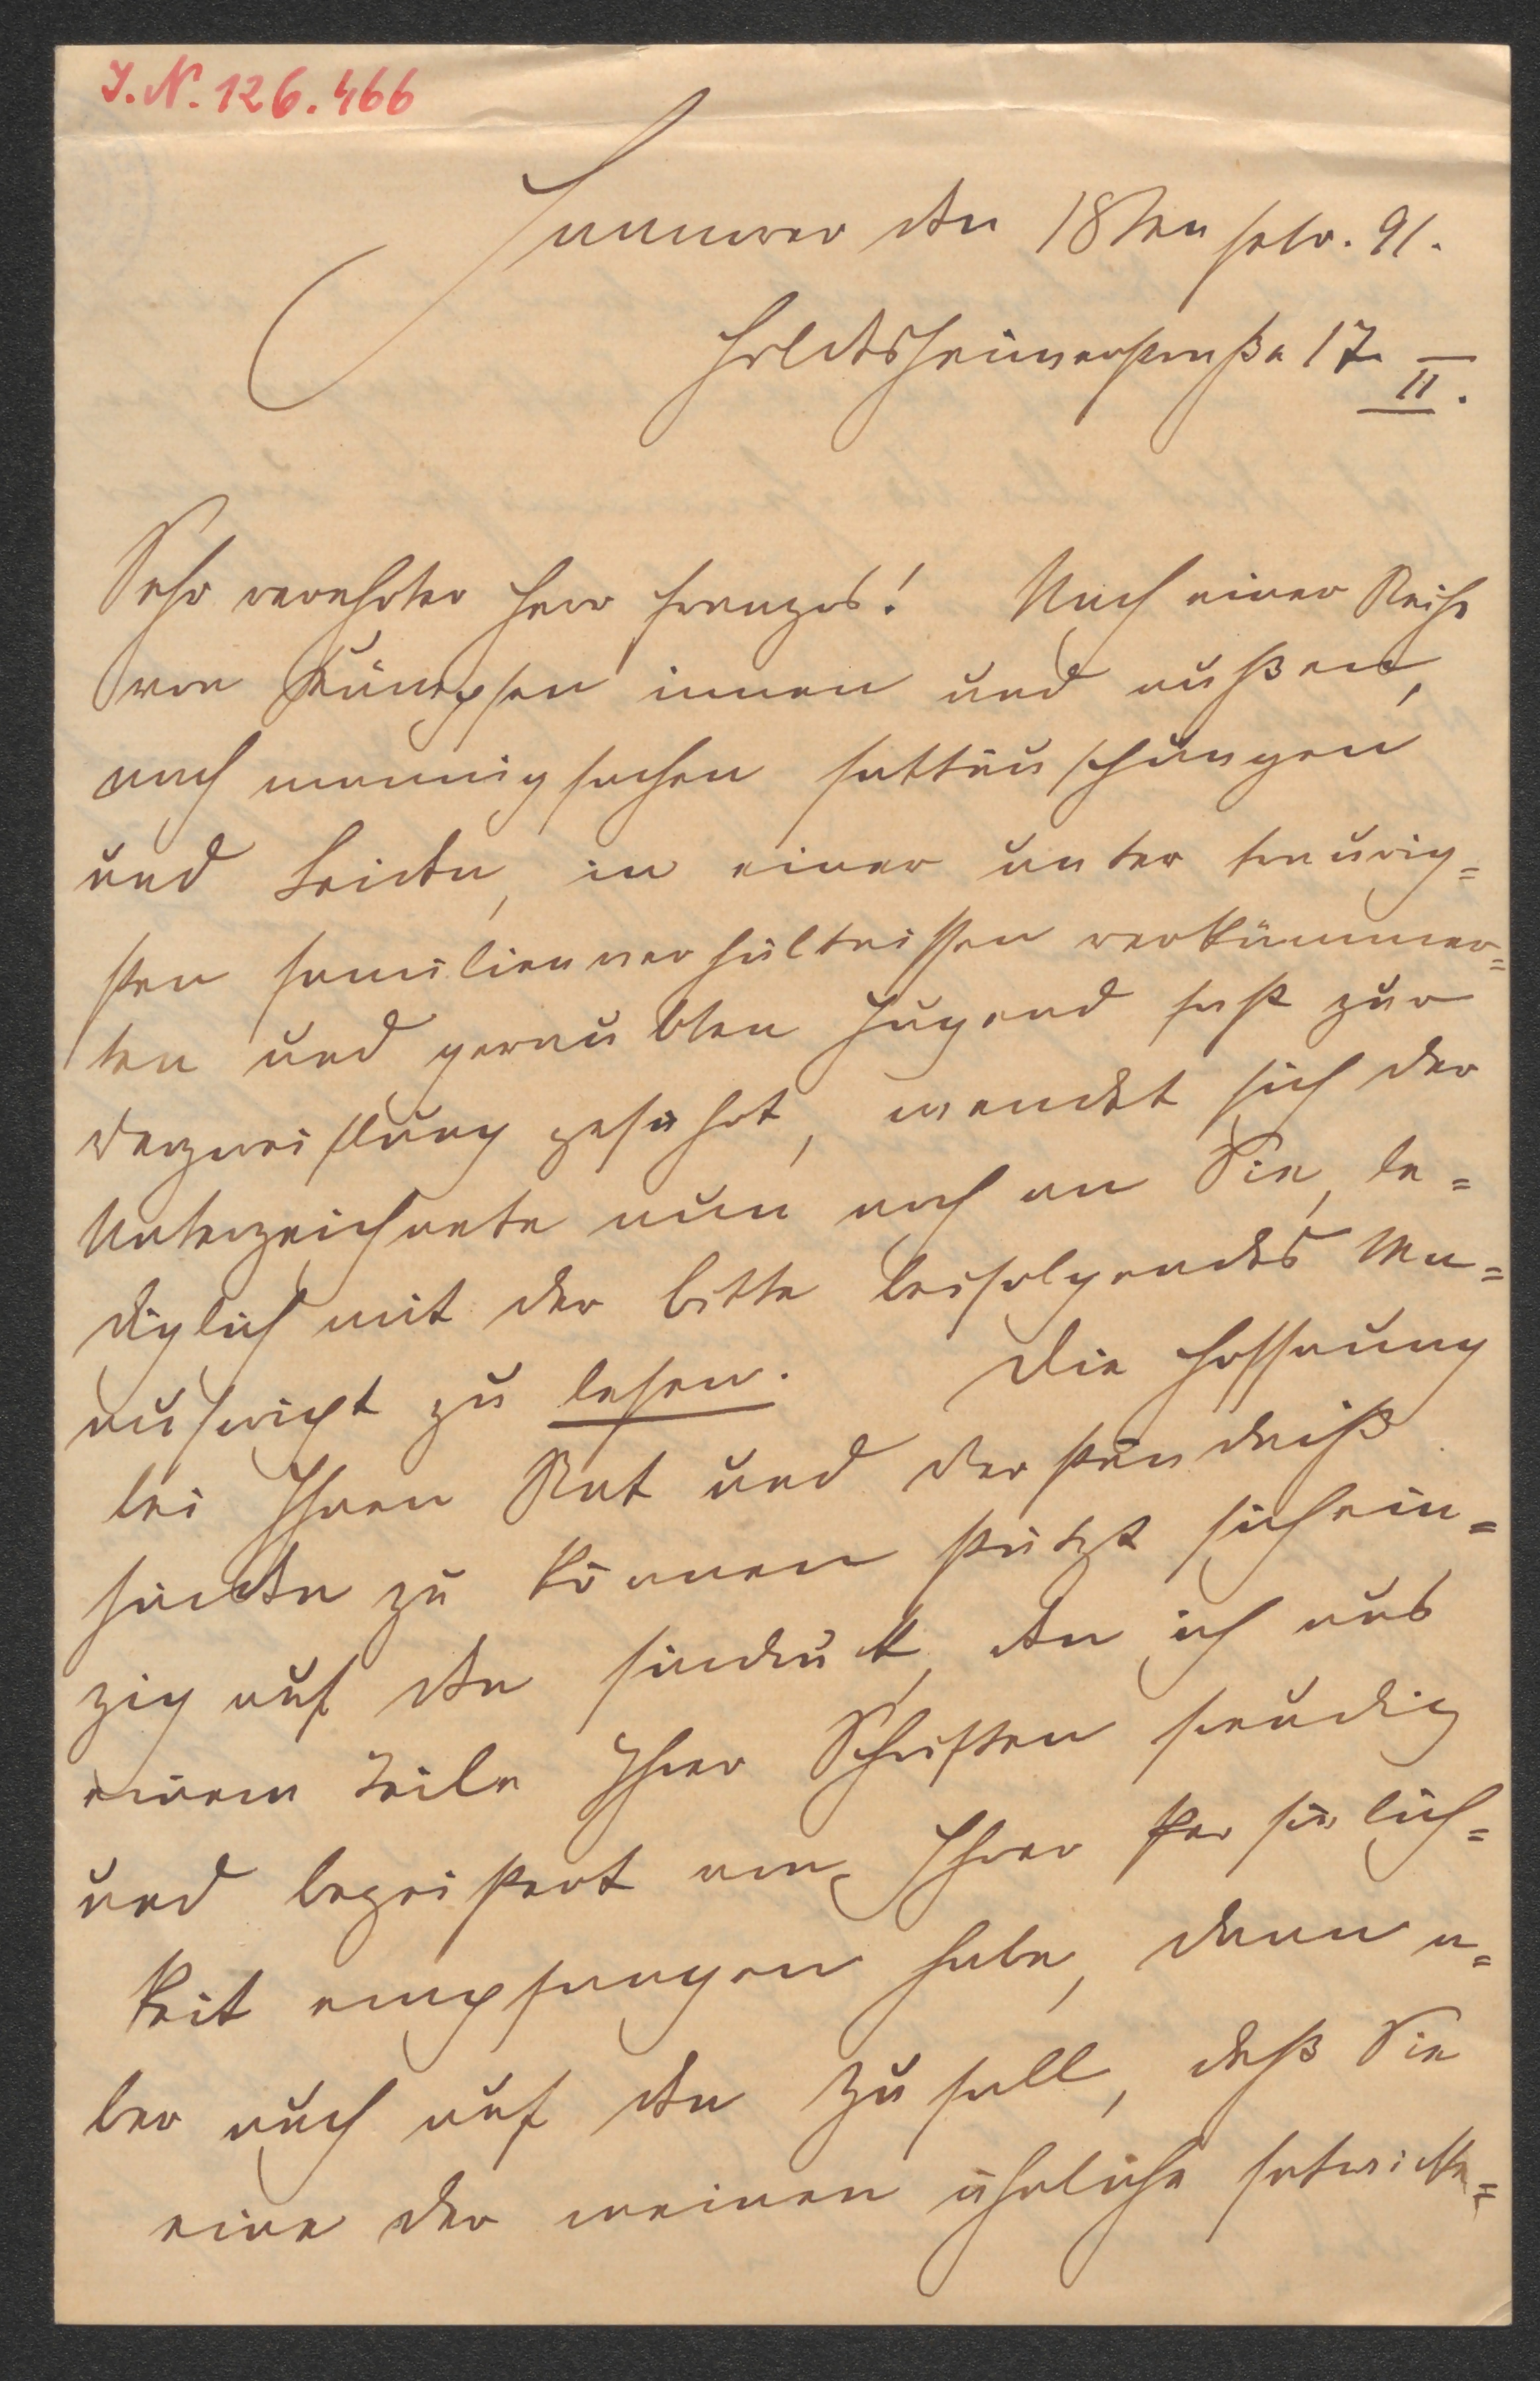 I.N. 126.466
Hannover den 18ten febr. 91.
Hildesheimerstraße 17 II.
Sehr verehrter Herr Franzos! Nach einer Reihe
von Kämpfen innen und außen,
nach mannigfachen Enttäuschungen
und Leiden, in einer unter traurig=
sten Familienverhältnissen verkümmer=
ten und geraubten Jugend fast zur
Verzweiflung geführt, wendet sich der
Unterzeichnete nun noch an Sie, le=
diglich mit der Bitte beifolgendes Ma=
nuscript zu lesen. Die Hoffnung
bei Ihnen Rat und Verständniß
finden zu können stützt sich ein=
zig auf den Eindruck, den ich aus
einem Teile Ihrer Schriften freudig
und begeistert von Ihrer Persönlich=
keit empfangen habe, dann a=
ber auch auf den Zufall, daß Sie
eine der meinen ähnliche Entwicke=